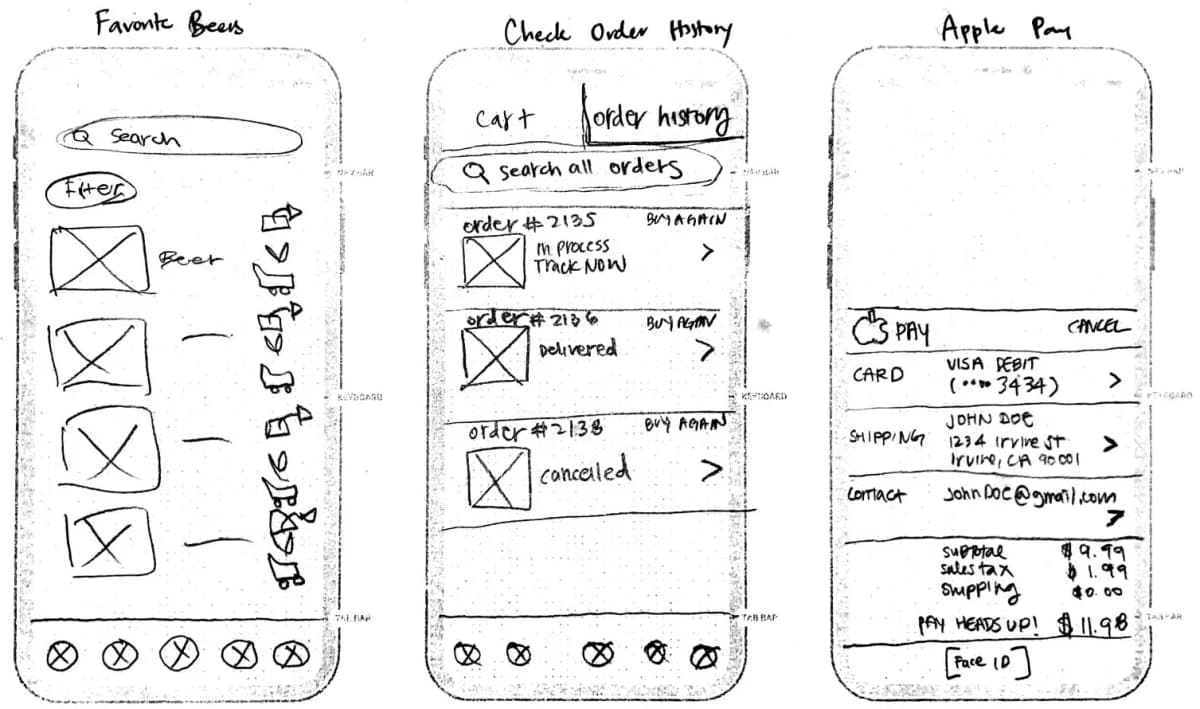 Favorite Beers
Search
Filter
Beer
TAB BAR
KEYBOARD
NAV BAR
Check Order History
Cart
order history
search all orders
NAV BAR
order # 2135 BUY AGAIN
In process
Track NOW
order # 2136 BUY AGAIN
Delivered
KEYBOARD
order #2138 BUY AGAIN
cancelled
TAB BAR
Apple Pay
PAY CANCEL
CARD VISA DEBIT
(**** 3434)
SHIPPING JOHN DOE
1234 Irvine St
Irvine, CA 90001
Contact JohnDoe@gmail.com
Subtotal $9.99
Sales tax $1.99
Shipping $0.00
PAY HEADS UP! $11.98
[Face ID]
NAV BAR
KEYBOARD
TAB BAR